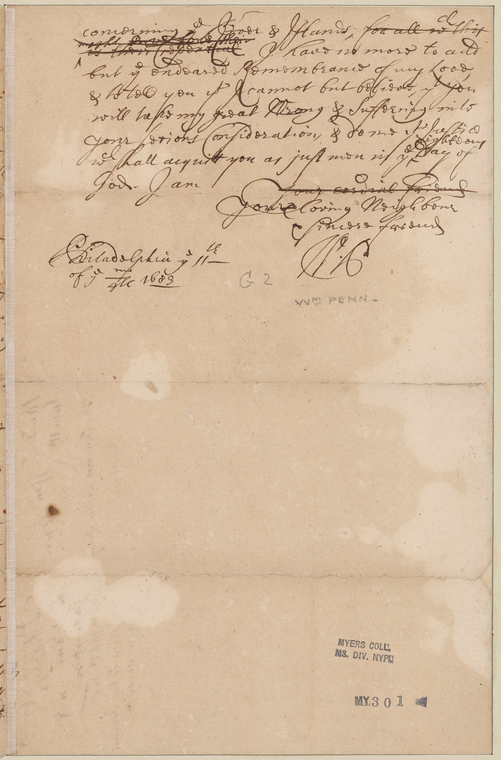 concerning ye River & Islands, for all wch this
I have no more to add
but ye endeared Remembrance of my Love,
& to tell you yt I cannot but believe yt you
will take my great Wrong & Suffering into
your serious Consideration, & do me yt Justice
wch shall acquit you as just men in ye Day of
God. I am
Your cordial friend
Your loving Neighbour
& sincere friend
WP
Philadelphia ye 11th
of ye 4th mo 1683
G 2
Wm PENN.
MYERS COLL.
MS. DIV. NYPL
MY.301